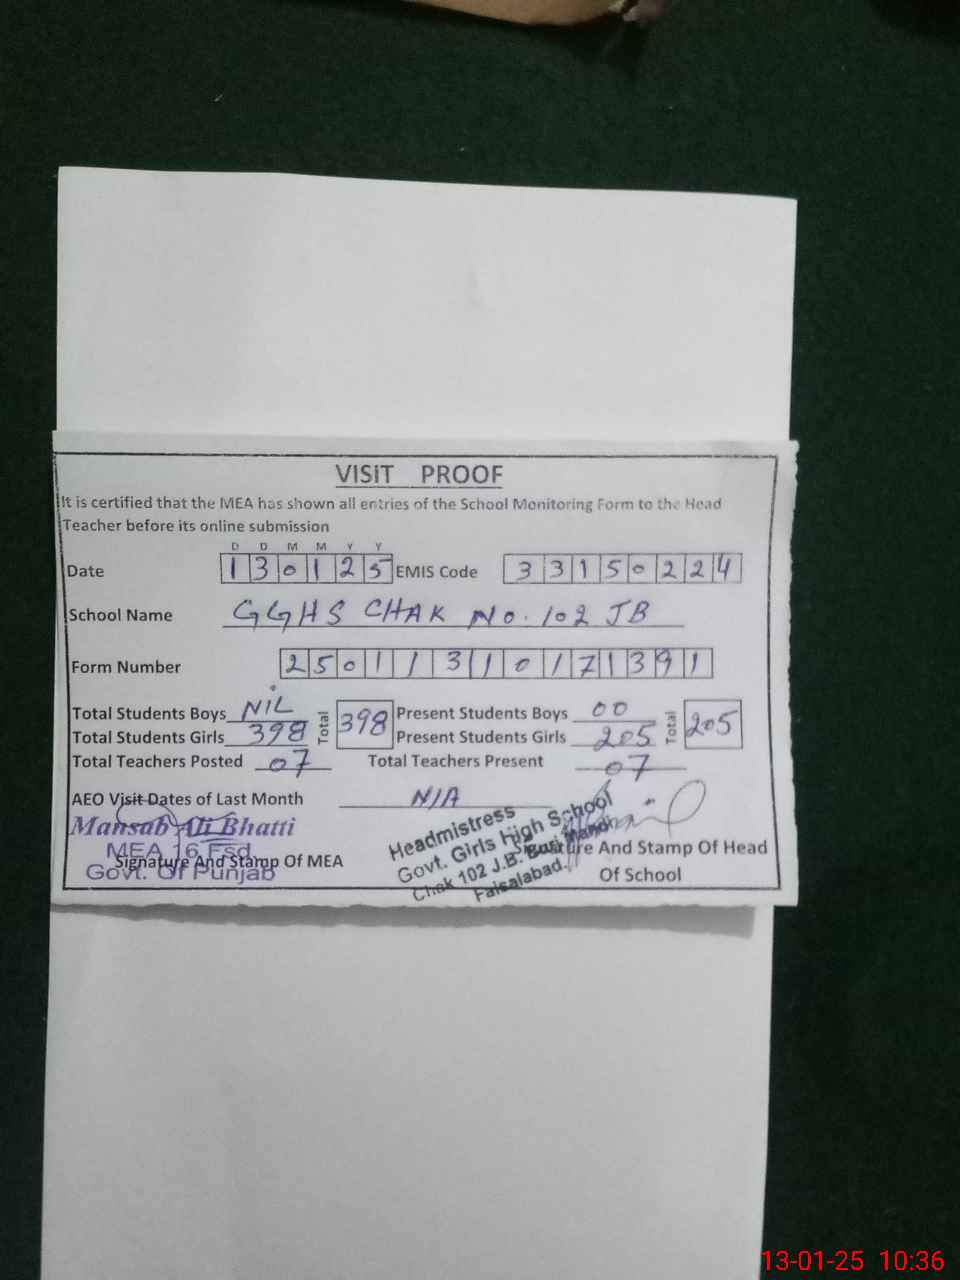 VISIT PROOF
It is certified that the MEA has shown all entries of the School Monitoring Form to the Head
Teacher before its online submission
D D M M Y Y
Date 130125 EMIS Code 33150224
School Name GGHS CHAK No. 102 JB
Form Number 25011310171391
Total Students Boys NIL Total 398 Present Students Boys 00 Total 205
Total Students Girls 398 Present Students Girls 205
Total Teachers Posted 07 Total Teachers Present 07
AEO Visit Dates of Last Month N/A
Mansab Ali Bhatti
MEA 16 Fsd
Signature And Stamp Of MEA
Govt. Of Punjab
Headmistress
Govt. Girls High School
Chak 102 J.B.
Faisalabad.
And Stamp Of Head
Of School
13-01-25 10:36